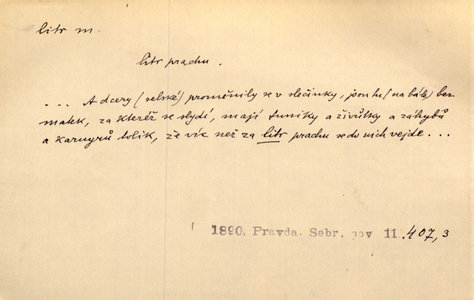 litr m.
litr prachu.
... A dcery (selské) proměnily se v slečinky, jsou tu (na bále) bez
matek, za kteréž se stydí, mají tuniky a živůtky a záhybů
a karnýrů tolik, že víc než za litr prachu se do nich vejde ...
1890. Pravda. Sebr. pov 11. 407,3